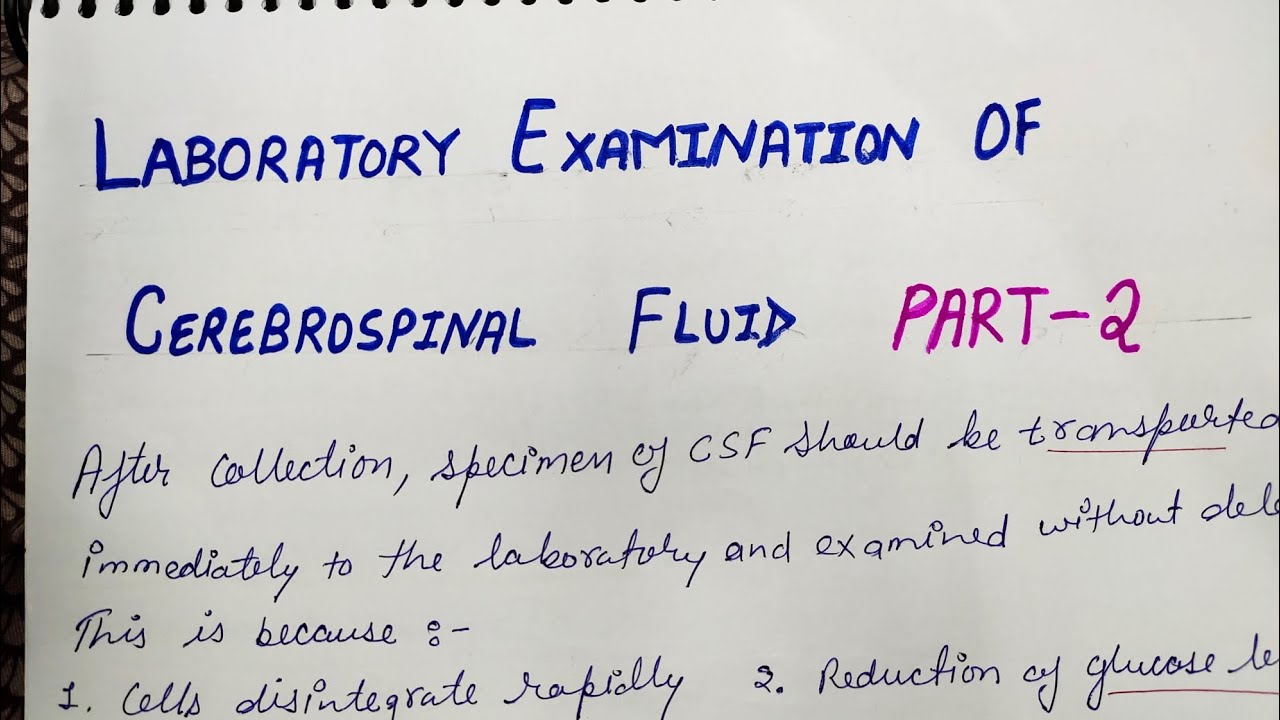 LABORATORY EXAMINATION OF
CEREBROSPINAL FLUID PART-2
After collection, specimen of CSF should be transported
immediately to the laboratory and examined without
This is because :-
1. Cells disintegrate rapidly 2. Reduction of glucose